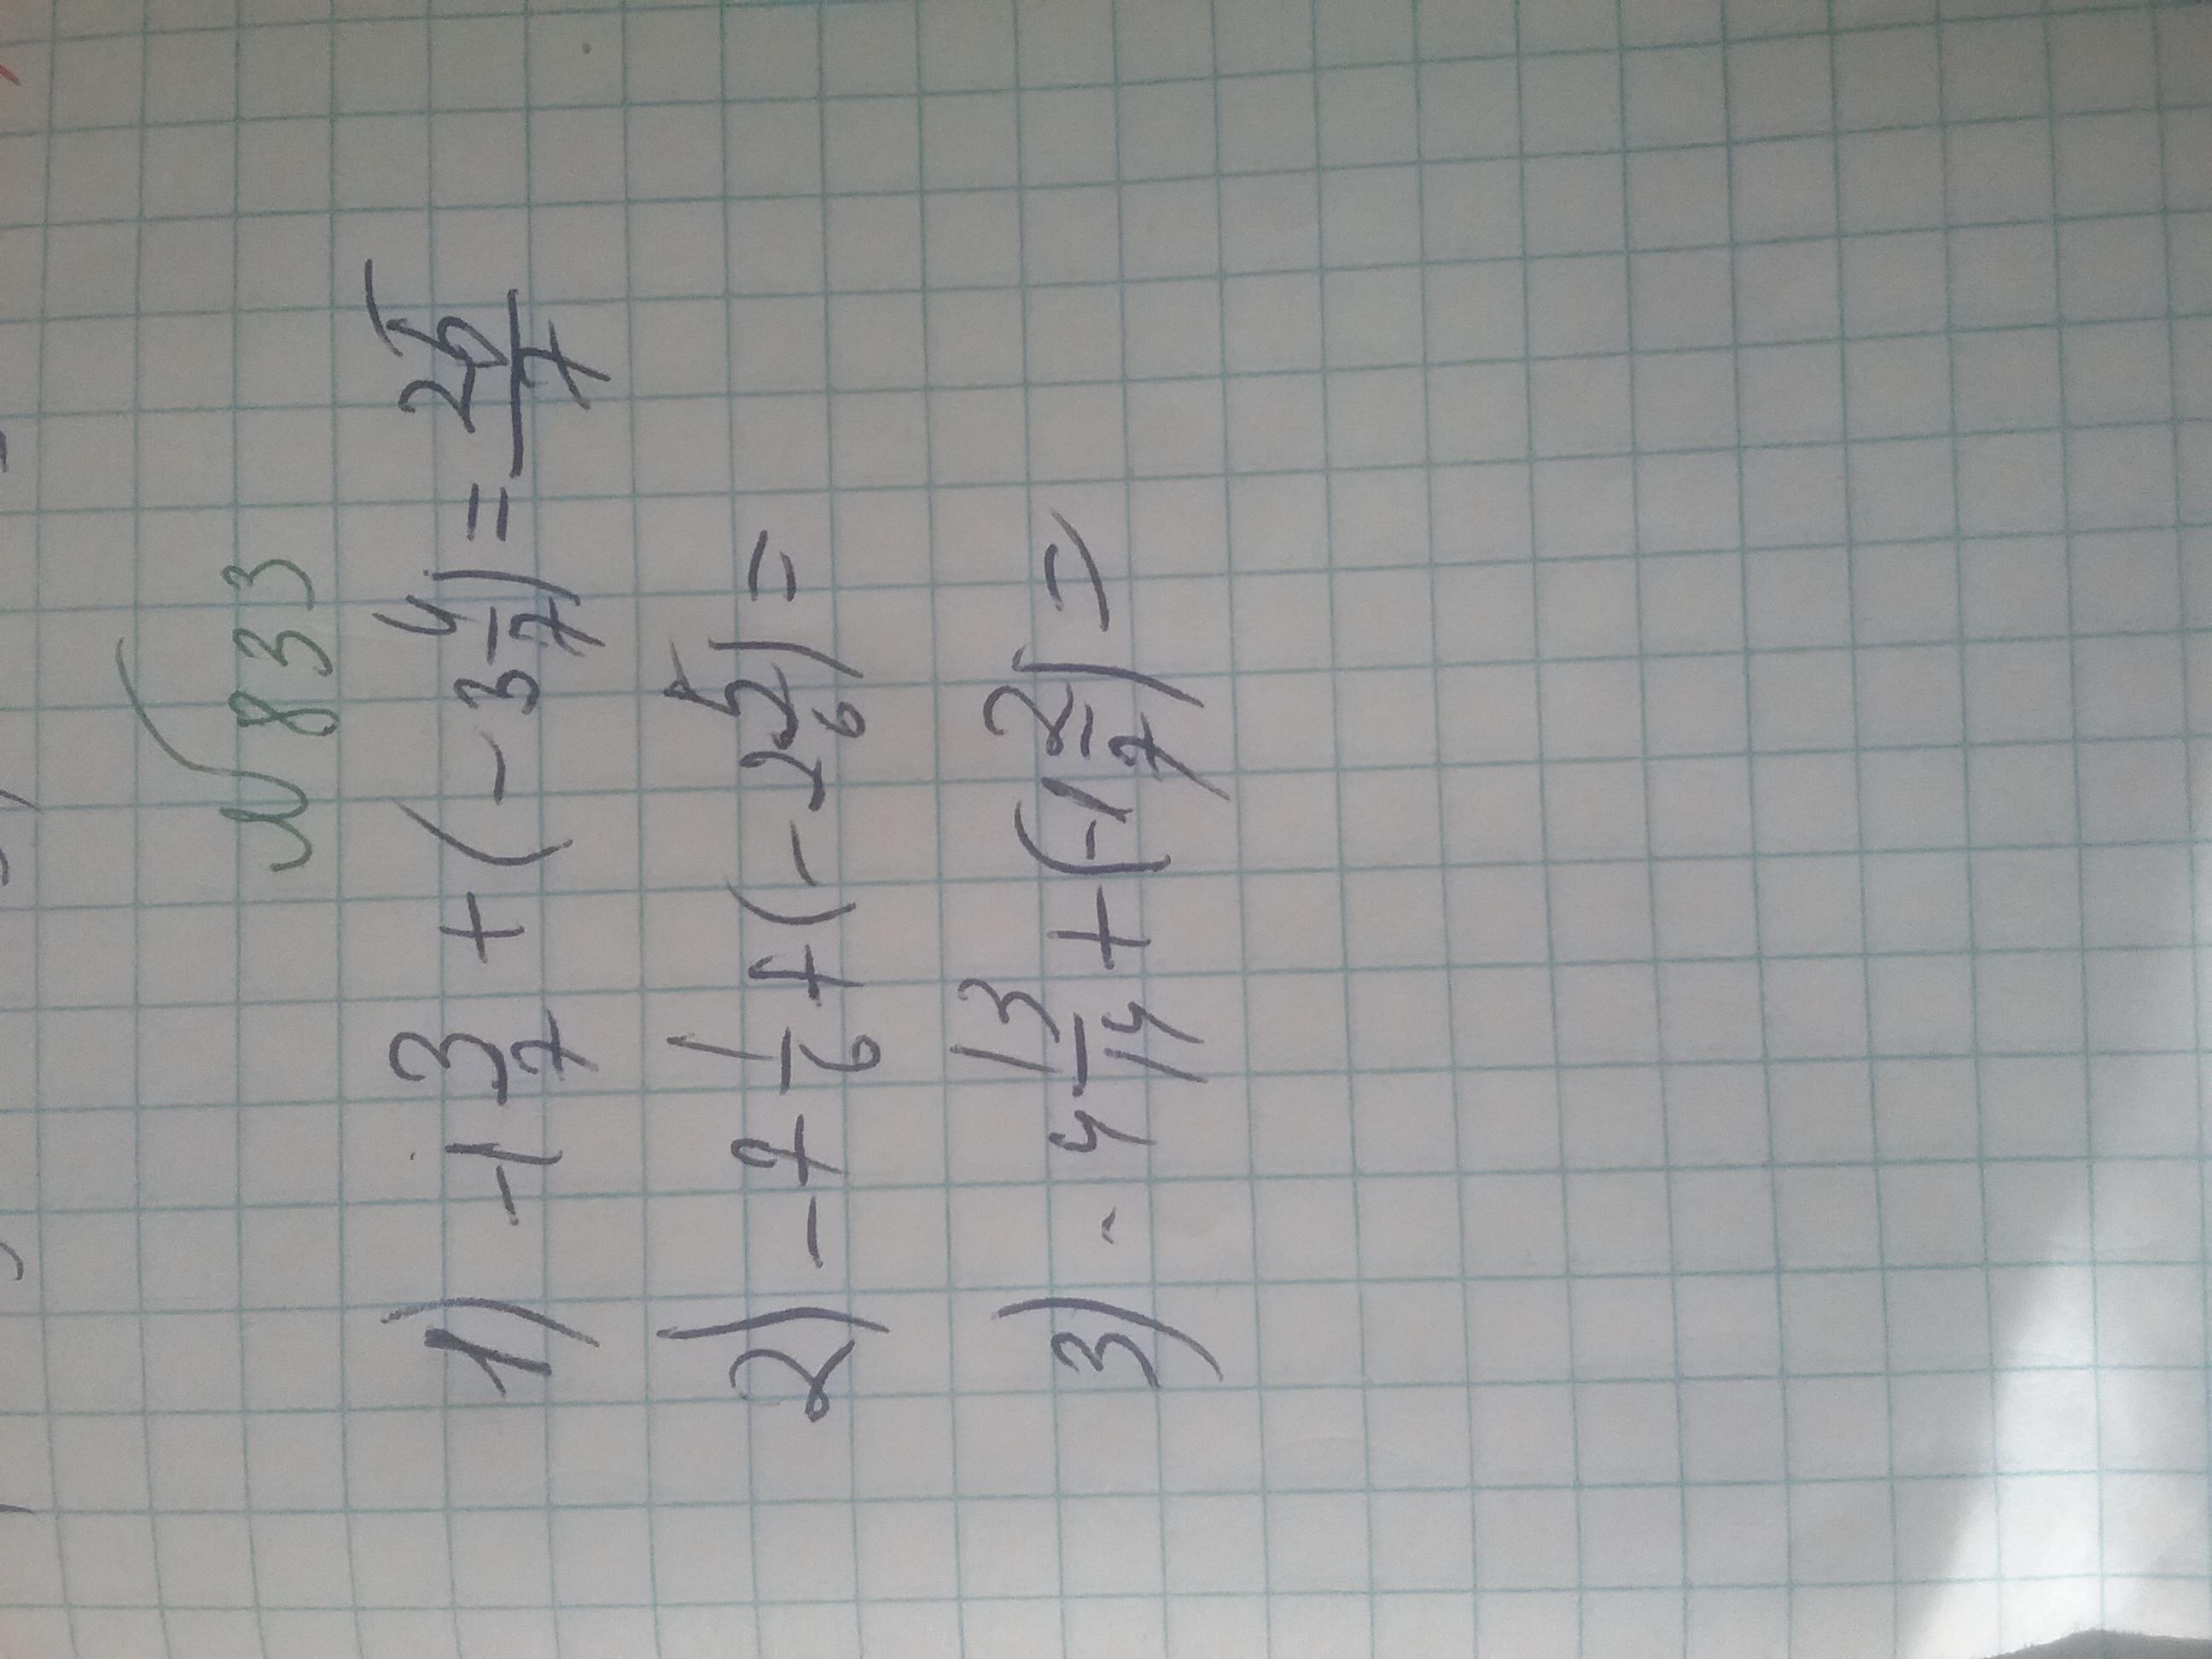 № 833
1) -1 3/7 + (-3 4/7) = 25/7
2) -7 1/6 + (-2 5/6) =
3) -4 13/14 + (-1 2/7) =